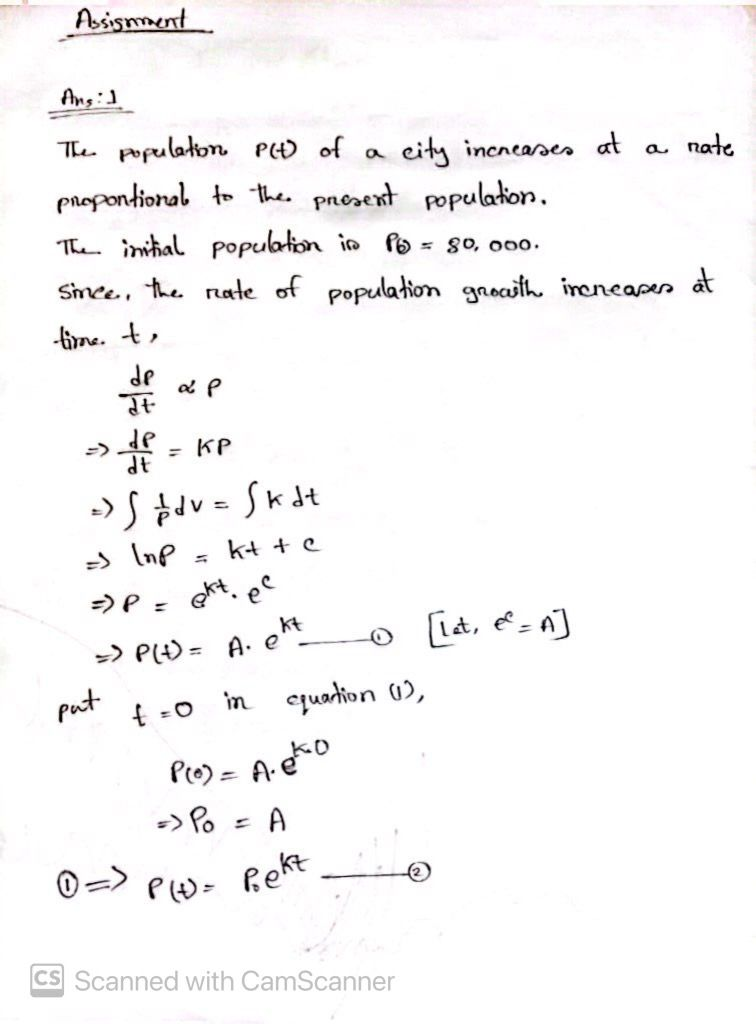 Assignment
Ans:1
The population P(t) of a city increases at a rate
proportional to the present population.
The initial population is P0 = 80,000.
Since, the rate of population growth increases at
time t,
dP/dt ∝ P
=> dP/dt = KP
=> ∫ 1/P dv = ∫ k dt
=> lnP = kt + c
=> P = e^kt . e^c
=> P(t) = A. e^kt ——— ① [Let, e^c = A]
put t = 0 in equation (1),
P(0) = A. e^k.0
=> P0 = A
① => P(t) = P0 e^kt ——— ②
CS Scanned with CamScanner